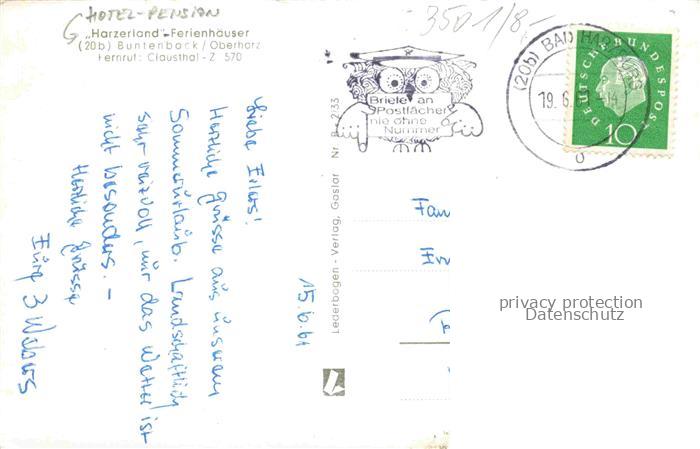 HOTEL-PENSION
„Harzerland"-Ferienhäuser
(20b) Buntenbock/Oberharz
Fernruf: Clausthal-Z 570
3501/8,-
Briefe an
Postfächer
nie ohne
Nummer
(20b) BAD HARZBURG
19.6.
14
DEUTSCHE BUNDESPOST
10
Liebe Erlers!
Herzliche Grüsse aus unserem
Sommerurlaub. Landschaftlich
sehr reizvoll, nur das Wetter ist
nicht besonders. –
Herzliche Grüsse
Eure 3 Webers
15.6.61
Lederbogen-Verlag, Goslar Nr. B 2/33
Fam
Er
privacy protection
Datenschutz